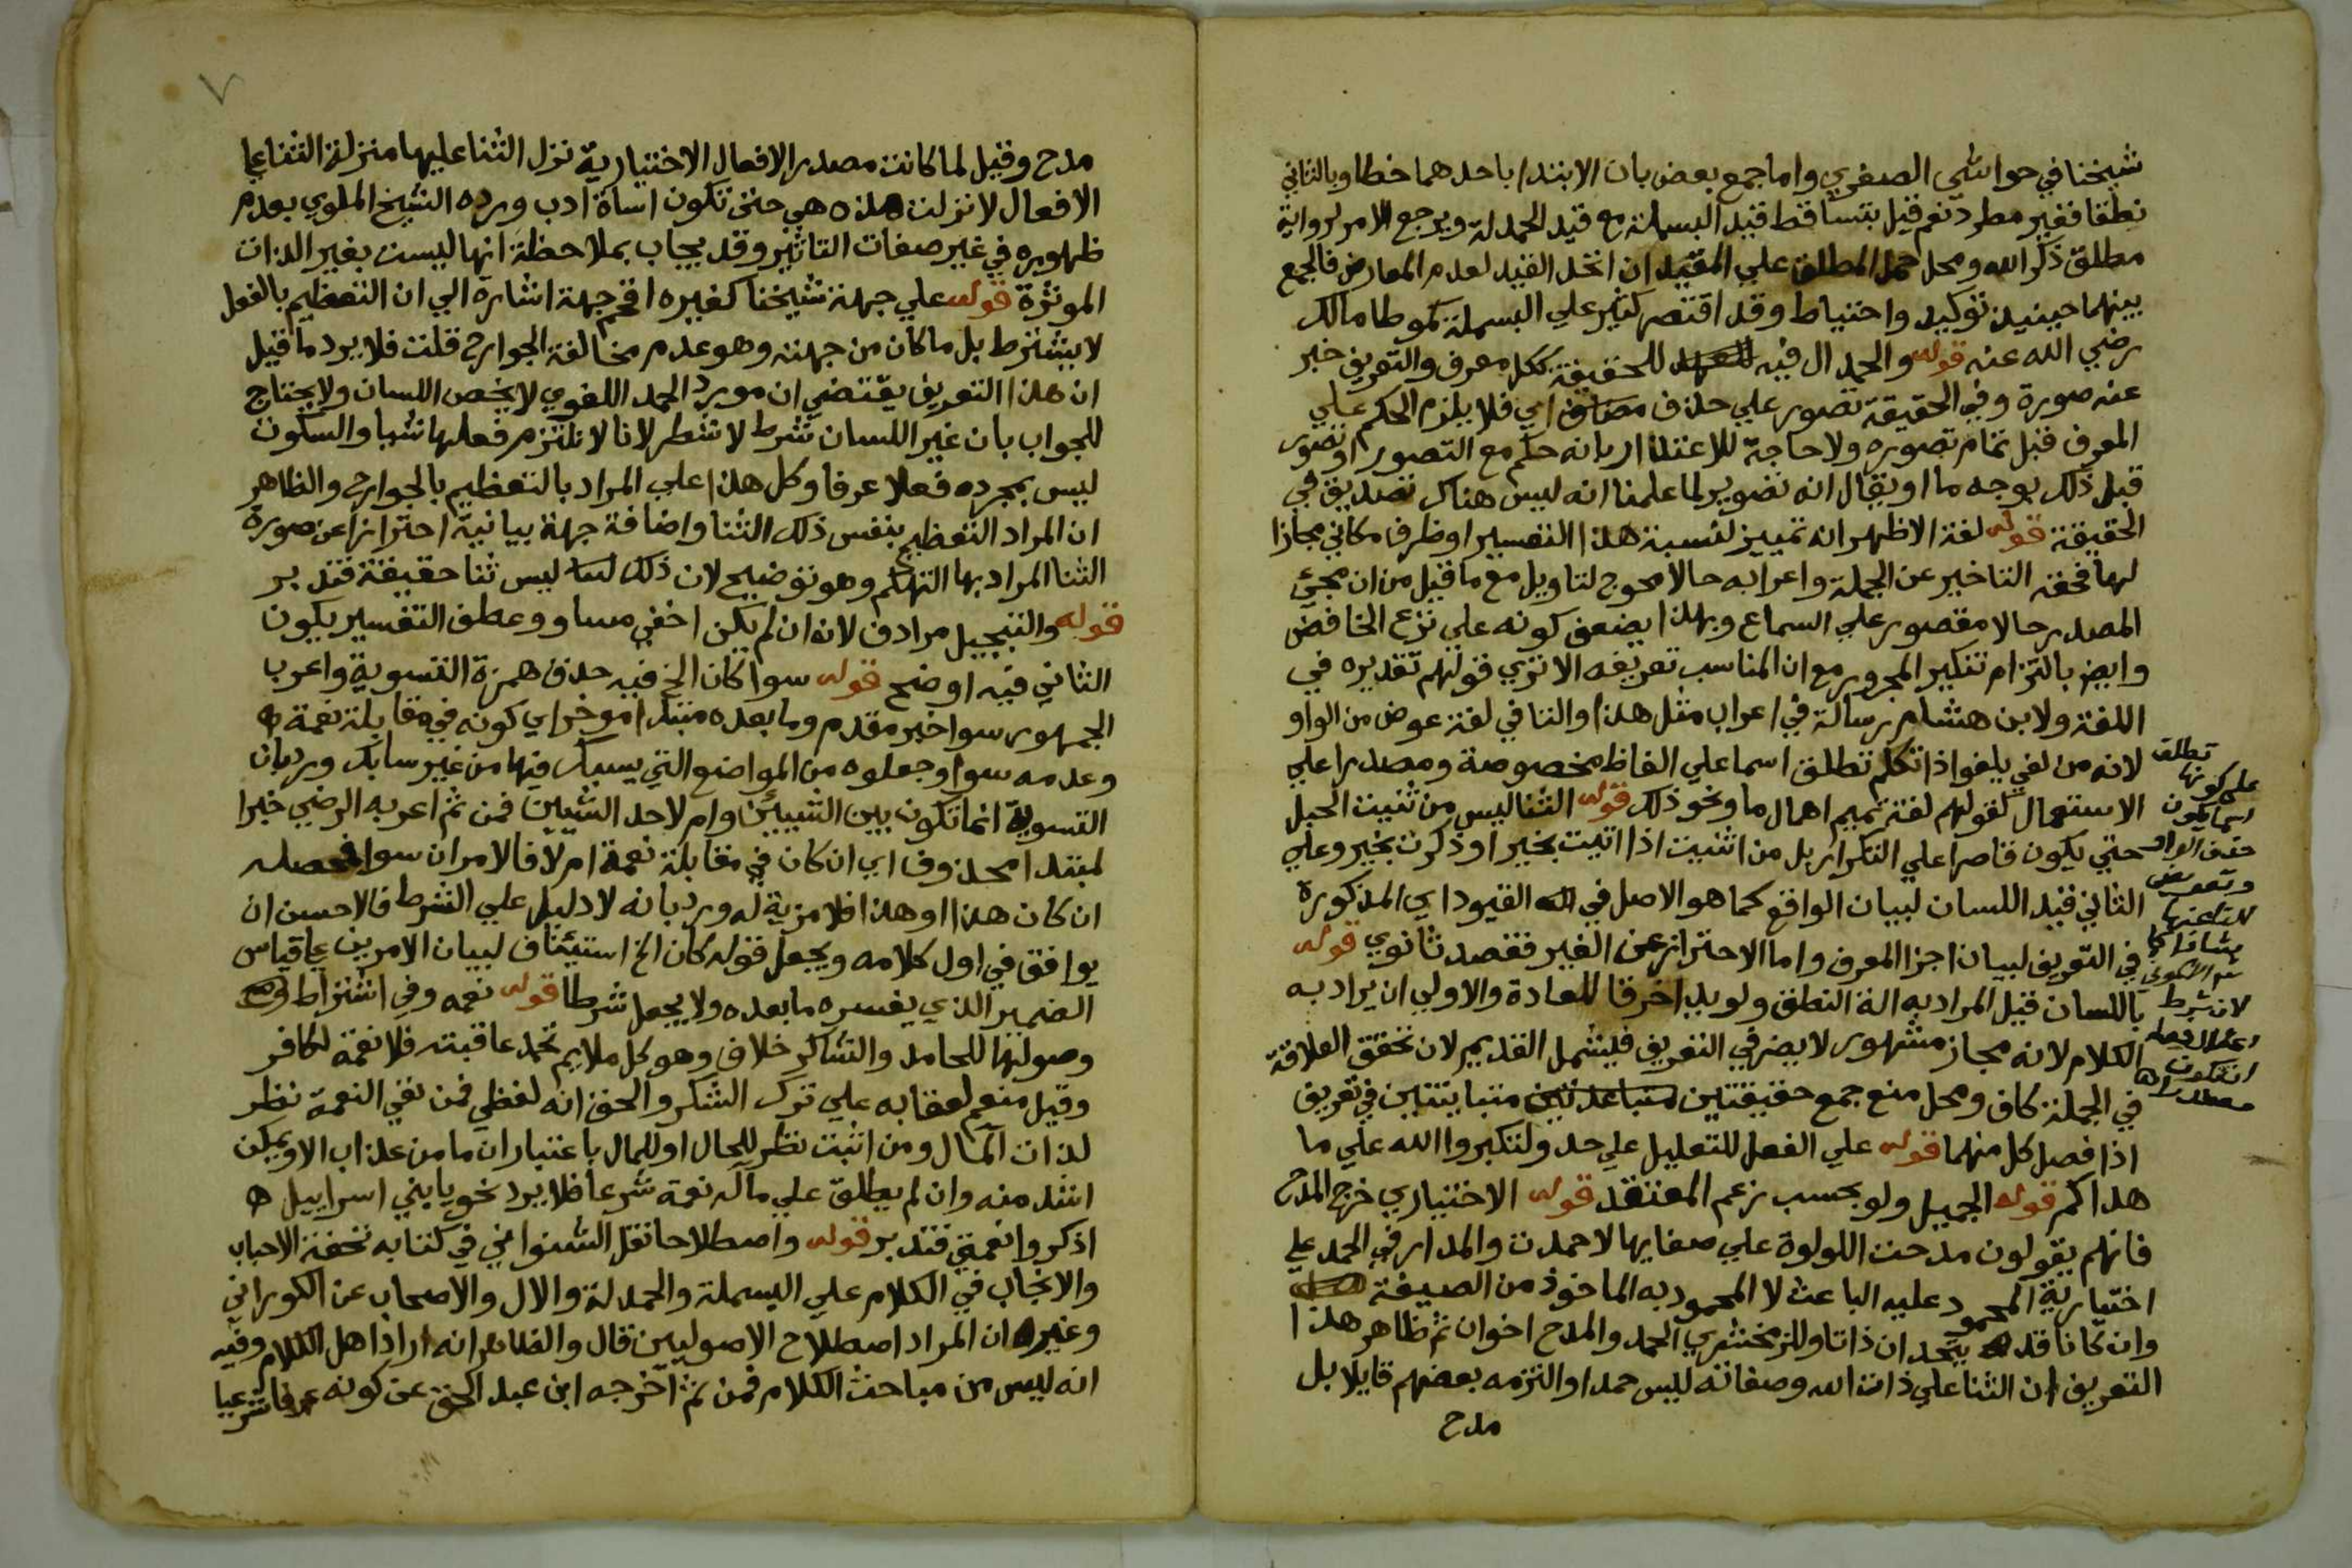 شيخنا في حواشي الصغري واما جمع بعض بان الابتدا باحدهما خطا وبالثاني
نطقا فغير مطرد نعم قيل بتساقط قيد البسملة مع قيد الحمدلة ويرجع الامر لرواية
مطلق ذكر الله ومحل حمل المطلق علي المقيد ان اتحد القيد لعدم المعارض فالجمع
بينهما حينيذ توكيد واحتياط وقد اقتصر كثير علي البسملة كموطا مالك
رضي الله عنه قوله والحمد ال فيه للحقيقة ككل معرف والتعريف خبر
عنه صورة وفي الحقيقة تصور علي حذف مضاف اي فلا يلزم الحكم علي
المعرف قبل تمام تصوره ولا حاجة للاعتذار بانه حكم مع التصور او تصور
قبل ذلك بوجه ما او يقال انه تصوير لما علمنا انه ليس هناك تصديق في
الحقيقة قوله لغة الاظهر انه تمييز لنسبة هذا التفسير او ظرف مكاني مجازا
لها فحقه التاخير عن الجملة واعرابه حالا محوج لتاويل مع ما قيل من ان مجيء
المصدر حالا مقصور علي السماع وبهذا يضعف كونه علي نزع الخافض
وايضا بالتزام تنكير المجرور مع ان المناسب تعريفه الا تري قولهم تقديره في
اللغة ولابن هشام رسالة في اعراب مثل هذا والتا في لغة عوض من الواو
لانه من لغي يلغو اذا تكلم تطلق اسما علي الفاظ مخصوصة ومصدرا علي
الاستعمال لقولهم لغة تميم اهمال ما ونحو ذلك قوله الثنا ليس من ثنيت الحبل
حتي يكون قاصرا علي التكرار بل من اثنيت اذا اتيت بخير او ذكرت بخير وعلي
الثاني قيد اللسان لبيان الواقع كما هو الاصل في القيود اي المذكورة
في التعريف لبيان اجزا المعرف واما الاحتراز عن الغير فقصد ثانوي قوله
باللسان قيل المراد به الة النطق ولو يدا خرقا للعادة والاولي ان يراد به
الكلام لانه مجاز مشهور لا يضر في التعريف فيشمل القديم لان تحقق العلاقة
في الجملة كاف ومحل منع جمع حقيقتين متباينتين في تعريف
اذا فصل كل منهما قوله علي الفعل للتعليل علي حد ولتكبروا الله علي ما
هداكم قوله الجميل ولو بحسب زعم المعتقد قوله الاختياري خرج المدح
فانهم يقولون مدحت اللولوة علي صفايها لا حمدت والمدار في الحمد علي
اختيارية المحمود عليه الباعث لا المحمود به الماخوذ من الصيغة
وان كانا قد يتحدان ذاتا وللزمخشري الحمد والمدح اخوان ثم ظاهر هذا
التعريف ان الثنا علي ذات الله وصفاته ليس حمدا والتزمه بعضهم قايلا بل
مدح
تطلق
علي كونها
اسما يكون
حذف الواو
وتعويض
التا عنها
لان شرط
٧
مدح وقيل لما كانت مصدر الافعال الاختيارية نزل الثنا عليها منزلة الثنا علي
الافعال لا نزلت هذه هي حتي تكون اساة ادب ورده الشيخ الملوي بعدم
ظهوره في غير صفات التاثير وقد يجاب بملاحظة انها ليست بغير الذات
الموثرة قوله علي جهة شيخنا كغيره اقحم جهة اشارة الي ان التعظيم بالفعل
لا يشترط بل ما كان من جهته وهو عدم مخالفة الجوارح قلت فلا يرد ما قيل
ان هذا التعريف يقتضي ان مورد الحمد اللغوي لا يخص اللسان ولا يحتاج
للجواب بان غير اللسان شرط لا شطر لانا لا نلتزم فعلها شيا والسكون
ليس بمجرده فعلا عرفا وكل هذا علي المراد بالتعظيم بالجوارح والظاهر
ان المراد التعظيم بنفس ذلك الثنا واضافة جهة بيانية احترازا عن صورة
الثنا المراد بها التهكم وهو توضيح لان ذلك ليس ثنا حقيقة فتدبر
قوله والتبجيل مرادف لانه ان لم يكن اخفي مساو وعطف التفسير يكون
الثاني فيه اوضح قوله سوا كان الخ فيه حذف همزة التسوية واعرب
الجمهور سوا خبر مقدم وما بعده مبتدا موخر اي كونه في مقابلة نعمة
وعدمه سوا وجعلوه من المواضع التي يسبك فيها من غير سابك ورد بان
التسوية انما تكون بين الشييين وام لاحد الشيين فمن ثم اعربه الرضي خبرا
لمبتدا محذوف اي ان كان في مقابلة نعمة ام لا فالامران سوا محصله
ان كان هذا او هذا فلا مزية له ورد بانه لا دليل علي الشرط فالاحسن ان
يوافق في اول كلامه ويجعل قوله كان الخ استيناف لبيان الامرين علي قياس
الضمير الذي يفسره ما بعده ولا يجعل شرطا قوله نعمه وفي اشتراط
وصولها للحامد والشاكر خلاف وهو كل ملايم تحمد عاقبته فلا نعمة لكافر
وقيل منعم لعقابه علي ترك الشكر والحق انه لفظي فمن نفي النعمة نظر
لذات المآل ومن اثبت نظر للحال او للمال باعتبار ان ما من عذاب الا ويمكن
اشد منه وان لم يطلق علي مآله نعمة شرعا فلا يرد نحو يا بني اسراييل
اذكروا نعمتي فتدبر قوله واصطلاحا نقل الشنواني في كتابه تحفة الاحباب
والانجاب في الكلام علي البسملة والحمدلة والال والاصحاب عن الكوراني
وغيره ان المراد اصطلاح الاصوليين قال والظاهر انه اراد اهل الكلام وفيه
انه ليس من مباحث الكلام فمن ثم اخرجه ابن عبد الحق عن كونه عرفا شرعيا